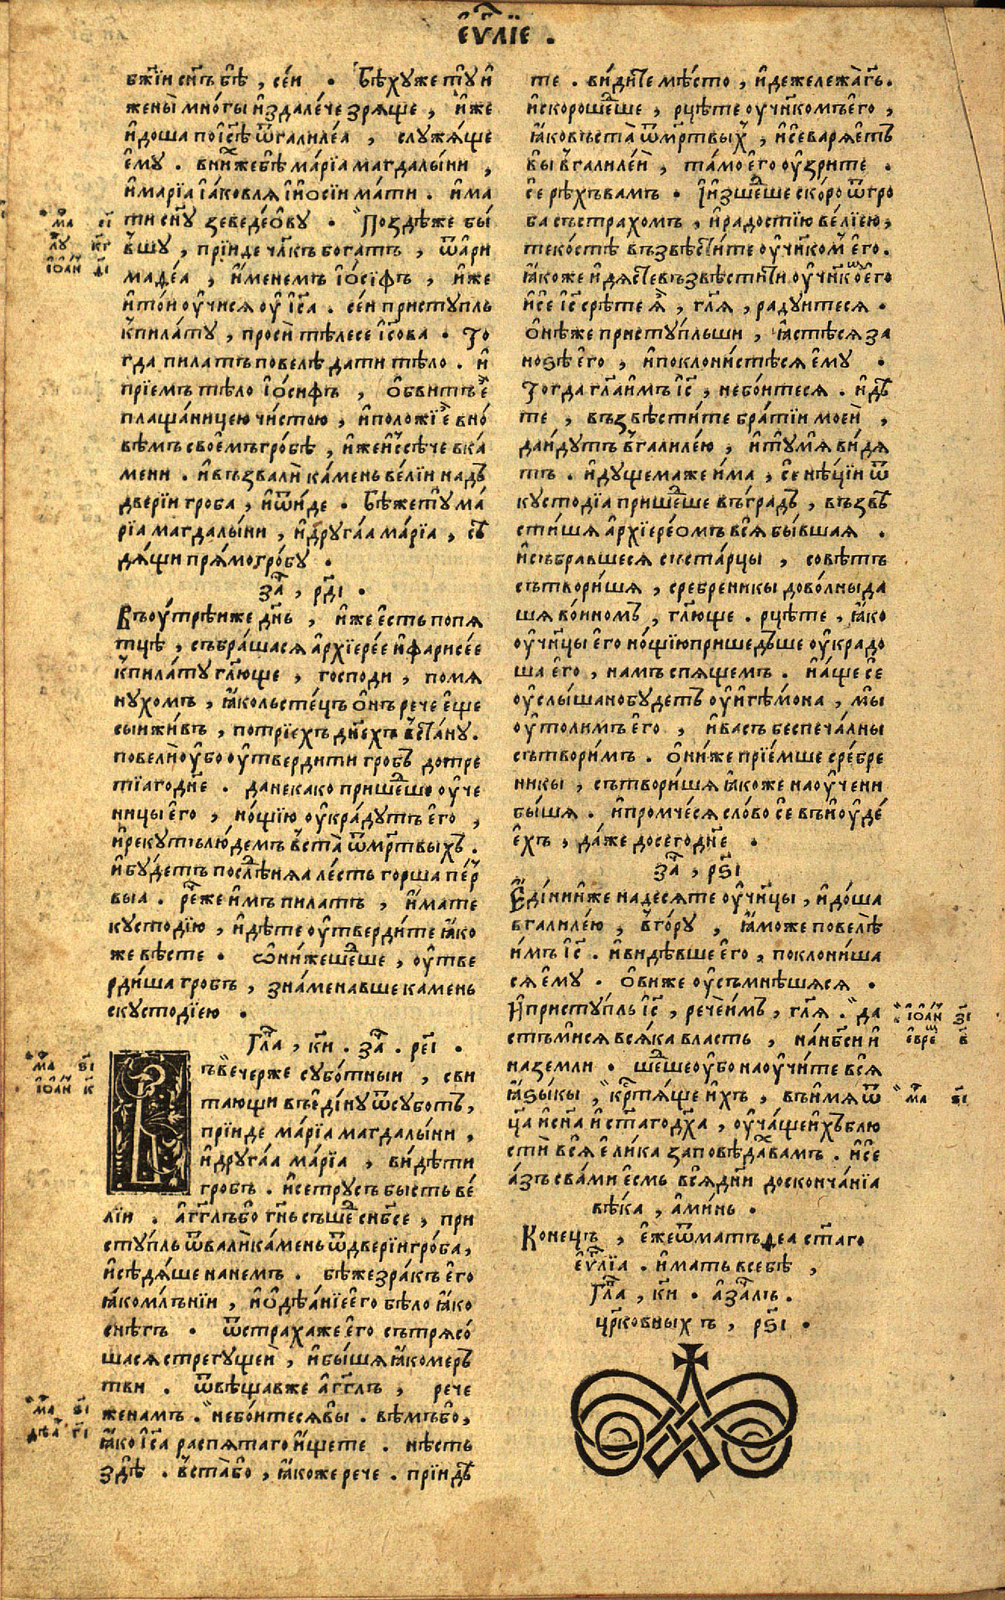 є҆ѵⷢ҇лїе .
бж҃їи сн҃ъ бѣ̀ , се́и . Бѣ́хуже тꙋ̀ и҆
жены̀ мно́гы и҆здале́че зря́ще , и҆́же
и҆доша по і҆с҃ѣ ѿгалиле́а , слꙋжа́ще
є҆мꙋ̀ . вни́хже бѣ̀ марі́а магдалы́ни ,
и҆марі́а і҆а́ковля и҆ і҆ѡсі́и ма́ти . и҆ма
ти сн҃ꙋ зеведе́ѡвꙋ . По́здѣже бы́
вшꙋ , прїи́де чл҃къ бога́тъ , ѿари
маде́а , и҆́менемъ і҆ѡ́сїфъ , и҆́же
и҆то́и ѹ҆чи́ся ѹ҆ і҆с҃а . се́и пристꙋ́пль
кпила́тꙋ , просѝ тѣ́лесе і҆с҃ова . То
гда пила́тъ повелѣ̀ да́ти тѣ́ло . и҆
прїе́мъ тѣ́ло і҆ѡ́сифъ , ѻ҆бви́тъ є҆̀
плаща́ницею чи́стою , и҆положи́ є҆̀ вно́
вѣмъ свое́мъ гро́бѣ , и҆́же и҆сѣ́че вка́
мени . и҆възвалѝ ка́мень ве́лїи на дъ
две́рїи гро́ба , и҆ѿи́де . Бѣ́же тꙋ̀ ма
рі́а магдалы́ни , и҆дрꙋга́а ма́рїа , сѣ
дя́щи пря́мо гро́бꙋ .
за҃ , рд҃і .
Въѹ҆́трѣиже дн҃ь , и҆́же є҆́сть попя
тцѣ̀ , събра́шася а҆рхїере́е и҆фарисе́е
кпила́тꙋ гл҃юще , го́споди , помя
нꙋ́хомъ , ꙗ҆́ко льсте́цъ ѻ҆́нъ речѐ є҆щѐ
сы́и жи́въ , потрїе́хъ дн҃ехъ въста́нꙋ .
повелѝ ѹ҆́бо ѹ҆тверди́ти гро́бъ до тре
тїаго дн҃е . да не ка́ко прише́дше ѹ҆че
ници́ є҆го̀ , но́щїю ѹ҆кра́дꙋтъ є҆го̀ ,
и҆рекꙋ́тъ лю́демъ въста̀ ѿме́ртвыхъ .
и҆бꙋ́детъ послѣ́дняа ле́сть го́рша пе́р
выа . рече́же и҆́мъ пила́тъ , и҆́мате
кꙋстоді́ю , и҆дѣ́те ѹ҆тверди́те ꙗ҆́ко
же вѣ́сте . ѡ҆ни́же ше́дше , ѹ҆тве
рди́ша гро́бъ , зна́менавше ка́мень
скꙋстоді́ею .
Гл҃а , кн҃ . за҃ . ре҃і .
Въ ве́черже сꙋбо́тныи , сви
та́ющи въ є҆ди́нꙋ ѿсꙋбо́тъ ,
прїи́де ма́рїа магдалы́ни ,
и҆дрꙋга́а ма́рїа , ви́дѣти
гро́бъ . и҆се трꙋ́съ бы́сть ве́
лїи . а҆́гг҃лъ бо гн҃ь съше́д снб҃се , при
стꙋ́пль ѿвалѝ ка́мень ѿ две́рїи гро́ба ,
и҆сѣдя́ше на не́мъ . бѣ́же зра́къ є҆го̀
ꙗ҆́ко мл҃ънїи , и҆ѻ҆дѣ́нїе є҆го̀ бѣ́ло ꙗ҆́ко
снѣ́гъ . ѿстра́хаже є҆го̀ сътрясо́
шася стрегꙋ́щеи , и҆бы́шя ꙗ҆́ко ме́рь
тви . ѿвѣща́вже а҆́гг҃лъ , рече
жена́мъ . небо́итеся вы̀ . вѣ́мъ бо ,
ꙗ҆́ко і҆с҃а распя́таго и҆́щете . нѣ́сть
здѣ̀ . въста̀ бо , ꙗ҆́коже рече . прїидѣ
те . ви́дите мѣ́сто , и҆дѣ́же лежа̀ гь .
и҆ско́ро ше́дше , рцѣ́те ѹ҆ченико́мъ є҆го̀ ,
ꙗ҆́ко въста̀ ѿме́ртвых , и҆сѐ варя́етъ
вы̀ вгалиле́и , та́мо є҆го̀ ѹ҆́зрите .
сѐ рѣ́хъ ва́мъ . И҆изше́дше ско́ро ѿгро
ба съ стра́хомъ , и҆ра́достїю ве́лїею ,
теко́стѣ възвѣсти́те ѹ҆ченико́м є҆го̀ .
ꙗ҆́коже и҆дя́сте възвѣсти́ти ѹ҆чн҃ко́ є҆го̀
и҆сѐ і҆с҃ срѣ́те ꙗ҆̀ , гл҃я , ра́дꙋитеся .
ѻ҆нѣ́же пристꙋ́пльши , ꙗ҆́стѣся за
но́ѕѣ є҆го̀ , и҆поклони́стѣся є҆мꙋ̀ .
Тогда̀ гл҃а и҆́мъ і҆с҃ , небо́итеся . и҆дѣ
те , възвѣсти́те бра́тїи мое́и ,
да и҆́дꙋтъ вгалиле́ю , и҆тꙋ̀ мя̀ ви́дя
тъ . и҆дꙋ́щемаже и҆́ма , сѐ нѣ́цїи ѿ
кꙋстоді́а прише́дше въ гра́дъ , възвѣ
сти́шя а҆рхїерео́мъ вся̀ бы́вшая .
и҆събра́вшеся съ ста́рцы , совѣ́тъ
сътвори́шя , сребре́никы дово́лны да
шя во́иномъ , гл҃юще . рцѣ́те , ꙗ҆́ко
ѹ҆чн҃цы̀ є҆го̀ но́щїю прише́дъше ѹ҆кра́до
ша є҆го̀ , на́мъ спя́щемъ . и҆а́ще сѐ
ѹ҆слы́шано бꙋ́детъ ѹ҆и҆ге́мона , мы̀
ѹ҆то́лимъ є҆го̀ , и҆ва́съ беспеча́лны
сътвори́мъ . ѻ҆ни́же прїе́мше сре́бре
никы , сътвори́шя ꙗ҆́коже наѹ҆че́ни
бы́шя . и҆промче́ся сло́во сѐ въ и҆ѹ҆де́
є҆хъ , да́же до сего̀ дн҃е .
за҃ , рѕ҃і
Є҆ді́ниже на́десяте ѹ҆чн҃цы , и҆до́ша
вгалиле́ю , вго́рꙋ , ꙗ҆́може повелѣ̀
и҆́мъ і҆с҃ . и҆ви́дѣвше є҆го̀ , поклони́ша
ся є҆мꙋ̀ . ѻ҆́виже ѹ҆съмнѣ́шяся .
И҆пристꙋ́пль і҆с҃ , речѐ и҆́мъ , гл҃я . да
стъ ми́ся вся́ка вла́сть , на нб҃си и҆
на землѝ . ше́дше ѹ҆́бо наѹ҆чи́те вся̀
ꙗ҆ѕы́кы , кр҃тя́ще и҆́хъ , въ и҆́мя ѿ
ц҃а и҆сн҃а и҆ст҃аго дх҃а , ѹ҆ча́ще и҆́хъ блю
стѝ вся̀ є҆ли́ка заповѣ́дах ва́мъ . и҆се
а҆́зъ сва́ми є҆́смь вся̀ дн҃и до сконча́нїа
вѣ́ка , а҆ми́нь .
Коне́цъ , є҆́же ѿматѳе́а ст҃аго
є҆ѵⷢ҇лїа . и҆́мать всебѣ̀ ,
Гл҃а , кн҃ . а҆за҃лъ .
црⷪ҇ковныхъ , рѕ҃і .
ма҃ еі҃
лꙋ҃ кг҃
і҆ѡа́н ді҃
ма҃ ѕі҃
і҆ѡа́н к҃
ма҃ ѕі҃
дѣа҃ гі҃
і҆ѡа́н зі҃
є҆вре́ в҃
ма҃ ѕі҃